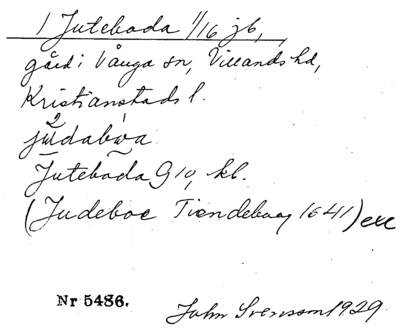 1 Juteboda 1/16 jb,
gård i Vånga sn, Villands hd,
Kristianstads l.
judaboa
Juteboda G 10, kl.
(Judeboe Tiendebog 1641) exc
Nr 5486.
John Svensson 1929